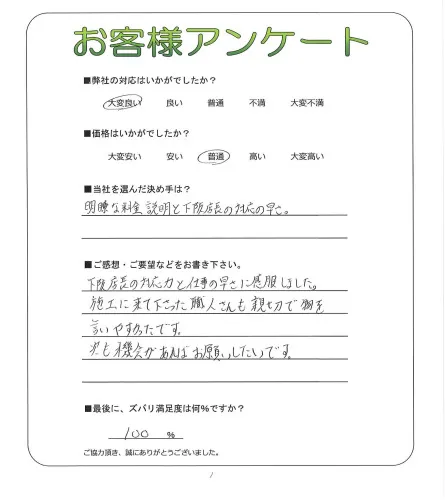 お客様アンケート
■弊社の対応はいかがでしたか？
大変良い 良い 普通 不満 大変不満
■価格はいかがでしたか？
大変安い 安い 普通 高い 大変高い
■当社を選んだ決め手は？
明瞭な料金説明と下段店長の対応の早さ。
■ご感想・ご要望などをお書き下さい。
下段店長の対応力と仕事の早さに感服しました。
施工に来て下さった職人さんも親切で物を
言いやすかったです。
次も機会があればお願いしたいです。
■最後に、ズバリ満足度は何%ですか？
100 %
ご協力頂き、誠にありがとうございました。